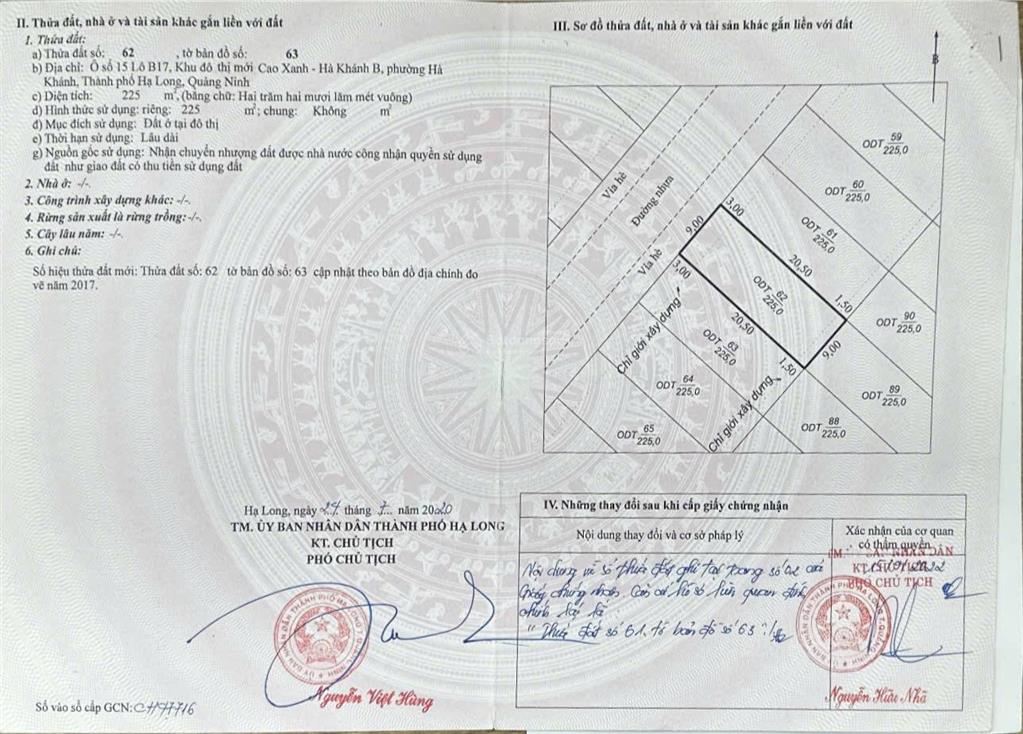 II. Thửa đất, nhà ở và tài sản khác gắn liền với đất
1. Thửa đất:
a) Thửa đất số: 62 , tờ bản đồ số: 63
b) Địa chỉ: Ô số 15 Lô B17, Khu đô thị mới Cao Xanh - Hà Khánh B, phường Hà
Khánh, Thành phố Hạ Long, Quảng Ninh
c) Diện tích: 225 m², (bằng chữ: Hai trăm hai mươi lăm mét vuông)
d) Hình thức sử dụng: riêng: 225 m²; chung: Không m²
đ) Mục đích sử dụng: Đất ở tại đô thị
e) Thời hạn sử dụng: Lâu dài
g) Nguồn gốc sử dụng: Nhận chuyển nhượng đất được nhà nước công nhận quyền sử dụng
đất như giao đất có thu tiền sử dụng đất
2. Nhà ở: -/-.
3. Công trình xây dựng khác: -/-.
4. Rừng sản xuất là rừng trồng: -/-.
5. Cây lâu năm: -/-.
6. Ghi chú:
Số hiệu thửa đất mới: Thửa đất số: 62 tờ bản đồ số: 63 cập nhật theo bản đồ địa chính đo
vẽ năm 2017.
Hạ Long, ngày tháng 7 năm 2020
TM. ỦY BAN NHÂN DÂN THÀNH PHỐ HẠ LONG
KT. CHỦ TỊCH
PHÓ CHỦ TỊCH
Nguyễn Việt Hùng
Số vào sổ cấp GCN:
III. Sơ đồ thửa đất, nhà ở và tài sản khác gắn liền với đất
B
ODT 59
225,0
ODT 60
225,0
ODT 61
225,0
Vỉa hè
Đường nhựa
Vỉa hè
3,00
9,00
3,00
20,50
ODT 62
225,0
1,50
20,50
ODT 90
225,0
Chỉ giới xây dựng
ODT 63
225,0
9,00
1,50
ODT 64
225,0
ODT 89
225,0
Chỉ giới xây dựng
ODT 88
225,0
ODT 65
225,0
IV. Những thay đổi sau khi cấp giấy chứng nhận
Nội dung thay đổi và cơ sở pháp lý
Xác nhận của cơ quan
có thẩm quyền
Nội dung về số thửa đất ghi tại trang số 02 của
Giấy chứng nhận. Căn cứ hồ sơ liên quan đính
chính lại là
"Thửa đất số 61, tờ bản đồ số 63"
KT
PHÓ CHỦ TỊCH
Nguyễn Hữu Nhã